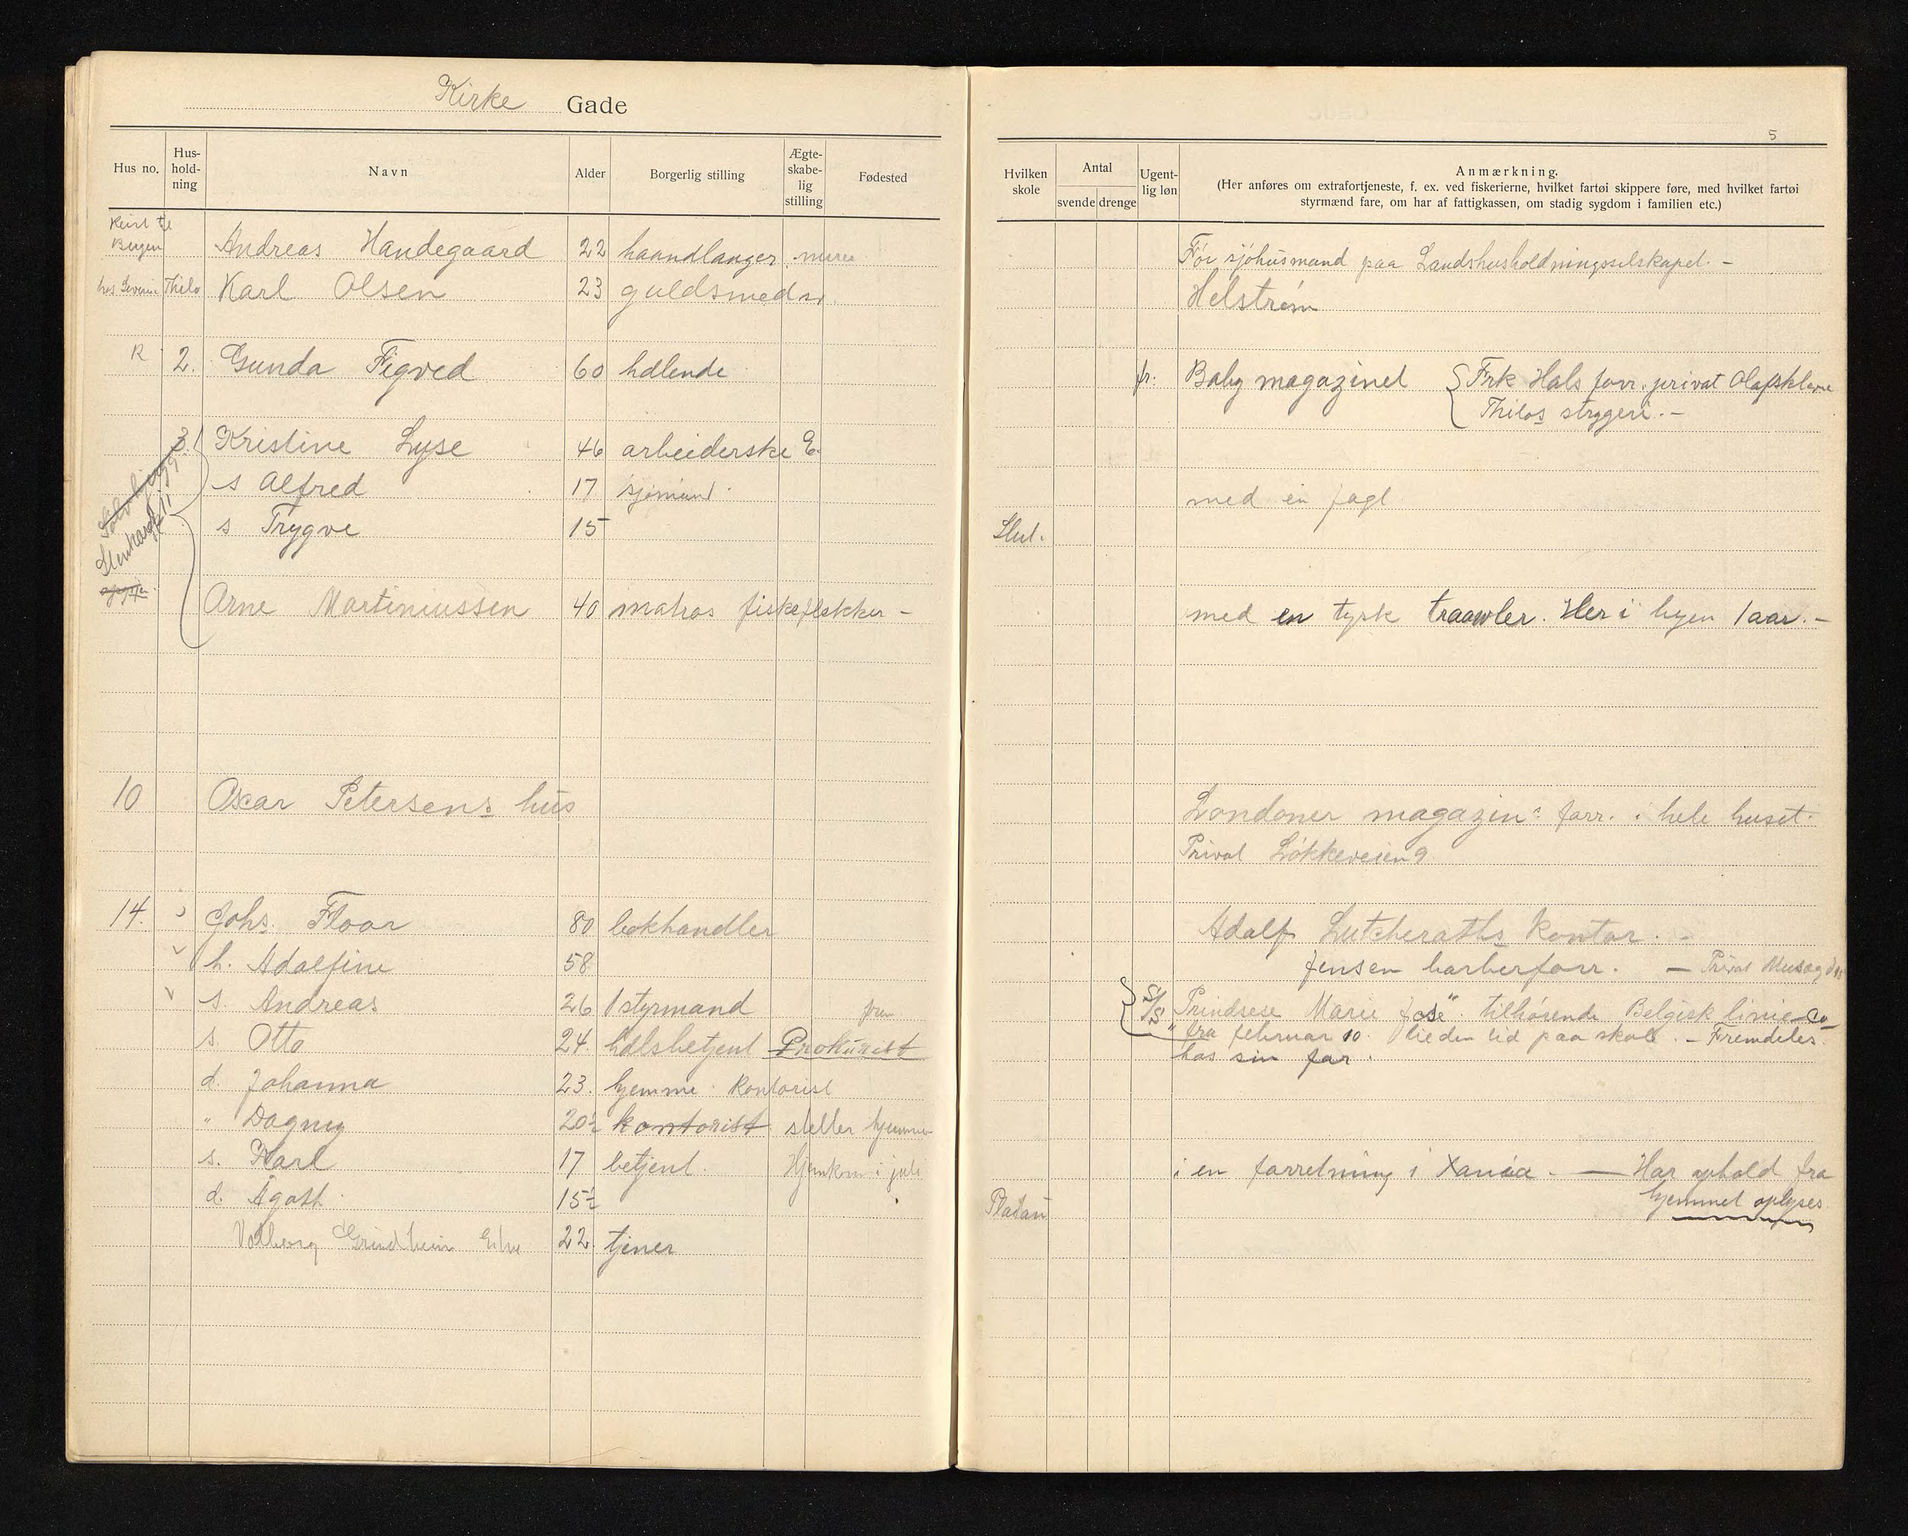 Kirke Gade
5
Hus no. Hus-hold-ning Navn Alder Borgerlig stilling Ægte-skabe-lig stilling Fødested
Hvilken skole Antal svende drenge Ugent-lig løn Anmærkning.
(Her anføres om extrafortjeneste, f. ex. ved fiskerierne, hvilket fartøi skippere føre, med hvilket fartøi
styrmænd fare, om har af fattigkassen, om stadig sygdom i familien etc.)
Reist til
Bergen Andreas Handegaard 22 haandlanger murer Før sjøhusmand paa Landshusholdningsselskapet. –
hos Thilo Karl Olsen 23 guldsmedsv. Helstrøm
R 2. Gunda Figved 60 hdlende fr. Baby magazinet { Frk Hals forr. privat Olafskleve
Thilos strygeri. –
3. Kristine Lyse 46 arbeiderske E.
s Alfred 17 sjømand. med en jagt
s Trygve 15 Slut.
Arne Martinussen 40 matros fiskeflekker – med en tysk traawler. Her i byen 1 aar. –
10 Oscar Petersens hus Londoner magazins forr. i hele huset.
Privat Løkkeveien 9.
14. Johs. Floor 80 bokhandler Adolf Lutcheraths kontor. –
h. Adolfine 58 Jensen barberforr. – Privat
s. Andreas 26 1 styrmand S/S Prindsese Marie José" tilhørende Belgisk linie Co
s. Otto 24. hdlsbetjent Prokurist fra februar 10. tid paa skole. – Fremdeles
hos sin far.
d. Johanna 23. hjemme. Kontorist
" Dagny 20½ kontorist steller hjemme
s. Karl 17 betjent. Hjemkom i juli i en forretning i Xania. — Har ophold fra
d. Agath. 15½ hjemmet oplyses
Valborg Grindheim 22 tjener